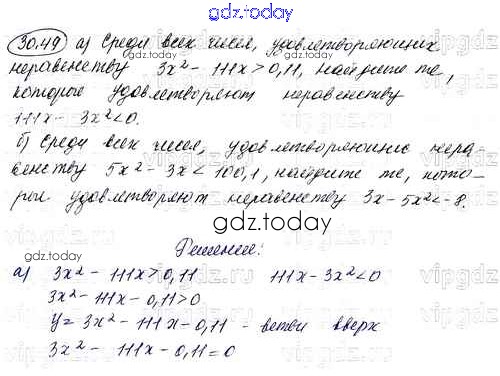 gdz.today
30.49 а) Среди всех чисел, удовлетворяющих
неравенству 3x² - 111x > 0,11, найдите те,
которые удовлетворяют неравенству
111x - 3x² < 0.
б) Среди всех чисел, удовлетворяющих нера-
венству 5x² - 3x < 100,1, найдите те, кото-
рые удовлетворяют неравенству 3x - 5x² < -8.
gdz.today
Решение:
а) 3x² - 111x > 0,11 111x - 3x² < 0
3x² - 111x - 0,11 > 0
y = 3x² - 111x - 0,11 - ветви вверх
3x² - 111x - 0,11 = 0
gdz.today